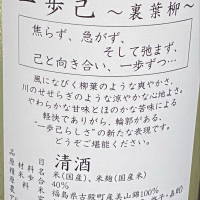 一歩己 ～裏葉柳～
焦らず、急がず、
そして弛まず、
己と向き合い、一歩ずつ…
風になびく柳葉のような爽やかさ、
川のせせらぎのような涼やかな心地よさ。
やわらかな甘味とほのかな苦味による
軽快でありがら、輪郭がある、
“一歩己らしさ”の新たな表現です。
どうぞご堪能ください。
目 清酒
米(国産)、米麹(国産米)
40%
福島県古殿町産美山錦100%